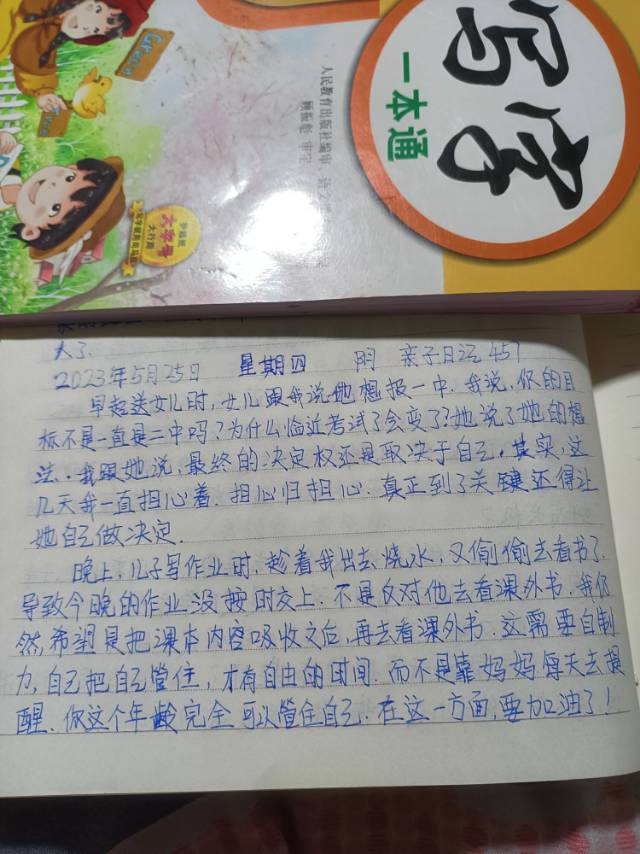 写字
一本通
人民教育出版社编审、语文
顾振彪 审定
Green
Tree
大字号
大了.
2023年5月25日 星期四 阴 亲子日记451
早起送女儿时,女儿跟我说她想报一中.我说,你的目
标不是一直是二中吗?为什么临近考试了会变了?她说了她的想
法.我跟她说,最终的决定权还是取决于自己.其实,这
几天我一直担心着.担心归担心.真正到了关键还得让
她自己做决定.
晚上,儿子写作业时.趁着我出去烧水,又偷偷去看书了.
导致今晚的作业没按时交上.不是反对他去看课外书.我仍
然希望是把课本内容吸收之后,再去看课外书.这需要自制
力,自己把自己管住,才有自由的时间.而不是靠妈妈每天去提
醒.你这个年龄完全可以管住自己.在这一方面,要加油了!